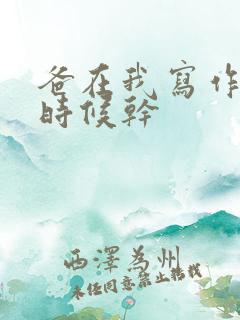 爸在我寫作
時候幹
西澤為州
未经同意禁止转载